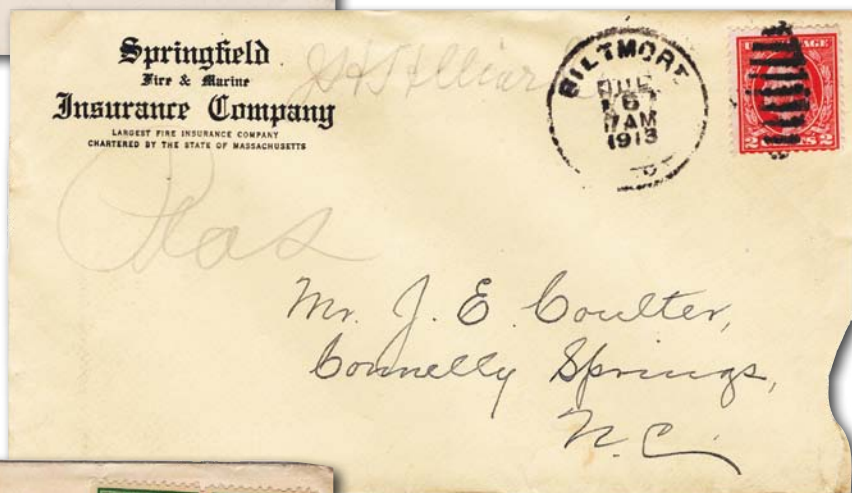 Springfield
Fire & Marine
Insurance Company
LARGEST FIRE INSURANCE COMPANY
CHARTERED BY THE STATE OF MASSACHUSETTS
BILTMORE
6
AM
1913
2 CENTS 2
Mr. J. E. Coulter,
Connelly Springs,
N. C.